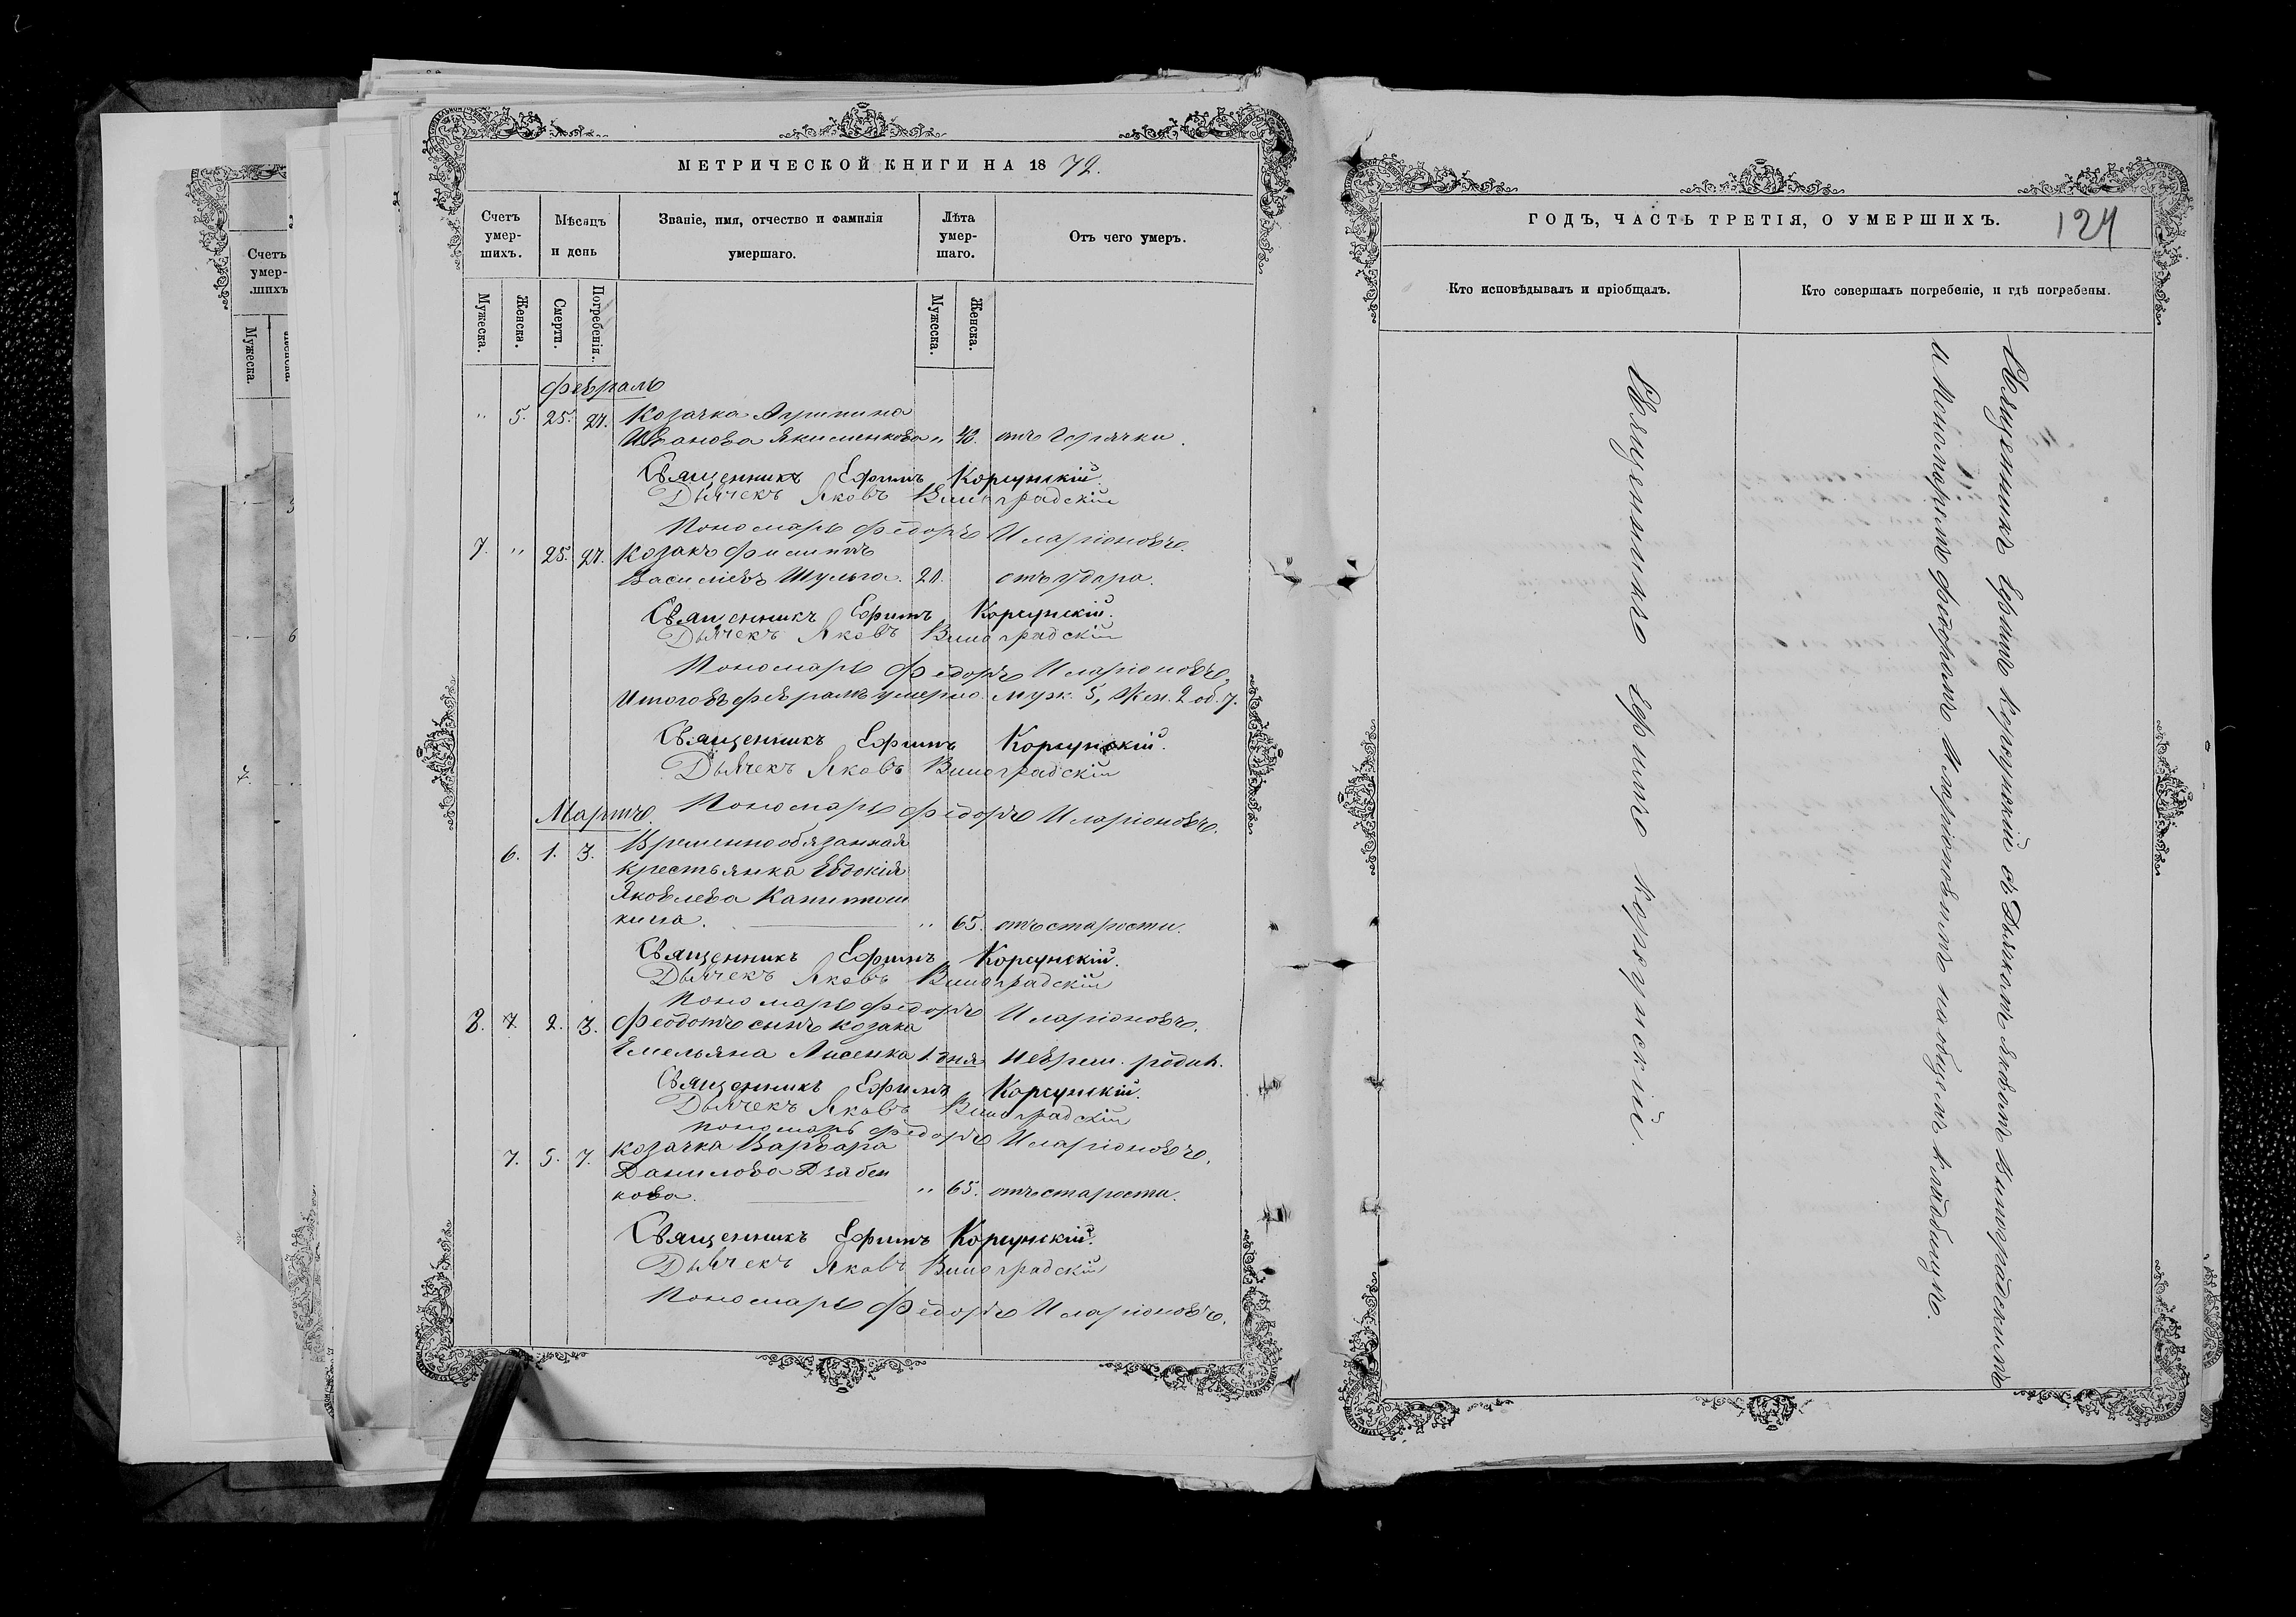 МЕТРИЧЕСКОЙ КНИГИ НА 1872.
Счетъ умер-шихъ.
Мѣсяцъ и день
Званіе, имя, отчество и фамилія умершаго.
Лѣта умер-шаго.
Отъ чего умеръ.
Мужеска.
Женска.
Смерти.
Погребенія.
Мужеска.
Женска.
Февраль
" 5. 25. 27. Козачка Агрипина
Иванова Якименкова " 40. отъ горячки.
Священникъ Ефимъ Корсунскій.
Дьячекъ Яковъ Виноградскій
Пономарь Федоръ Иларіоновъ.
7. " 25. 27. Козакъ Филиппъ
Василіевъ Шульга. 20. отъ удара.
Священникъ Ефимъ Корсунскій.
Дьячекъ Яковъ Виноградскій
Пономарь Федоръ Иларіоновъ.
Итого въ Февралѣ умерло. муж. 5, Жен. 2 об. 7.
Священникъ Ефимъ Корсунскій.
Дьячекъ Яковъ Виноградскій
Пономарь Федоръ Иларіоновъ.
Мартъ.
6. 1. 3. Временно обязанная
крестьянка Евдокія
Яковлева Капитош
кина. " 65. отъ старости.
Священникъ Ефимъ Корсунскій.
Дьячекъ Яковъ Виноградскій
Пономарь Федоръ Иларіоновъ.
8. 2. 3. Феодотъ сынъ козака
Емельяна Лисенка 1. дня Неврем. родил.
Священникъ Ефимъ Корсунскій.
Дьячекъ Яковъ Виноградскій
Пономарь Федоръ Иларіоновъ.
7. 5. 7. Козачка Варвара
Данилова Дзабен
кова. " 65. отъ старости.
Священникъ Ефимъ Корсунскій.
Дьячекъ Яковъ Виноградскій
Пономарь Федоръ Иларіоновъ.
ГОДЪ, ЧАСТЬ ТРЕТІЯ, О УМЕРШИХЪ. 124
Кто исповѣдывалъ и пріобщалъ.
Кто совершалъ погребеніе, и гдѣ погребены.
Священникъ Ефимъ Корсунскій.
Священникъ Ефимъ Корсунскій съ Дьячкомъ Яковомъ Виноградскимъ
и Пономаремъ Федоромъ Иларіоновымъ на общемъ кладбищѣ.
Счетъ умер-шихъ
Мужеска.
7.
6